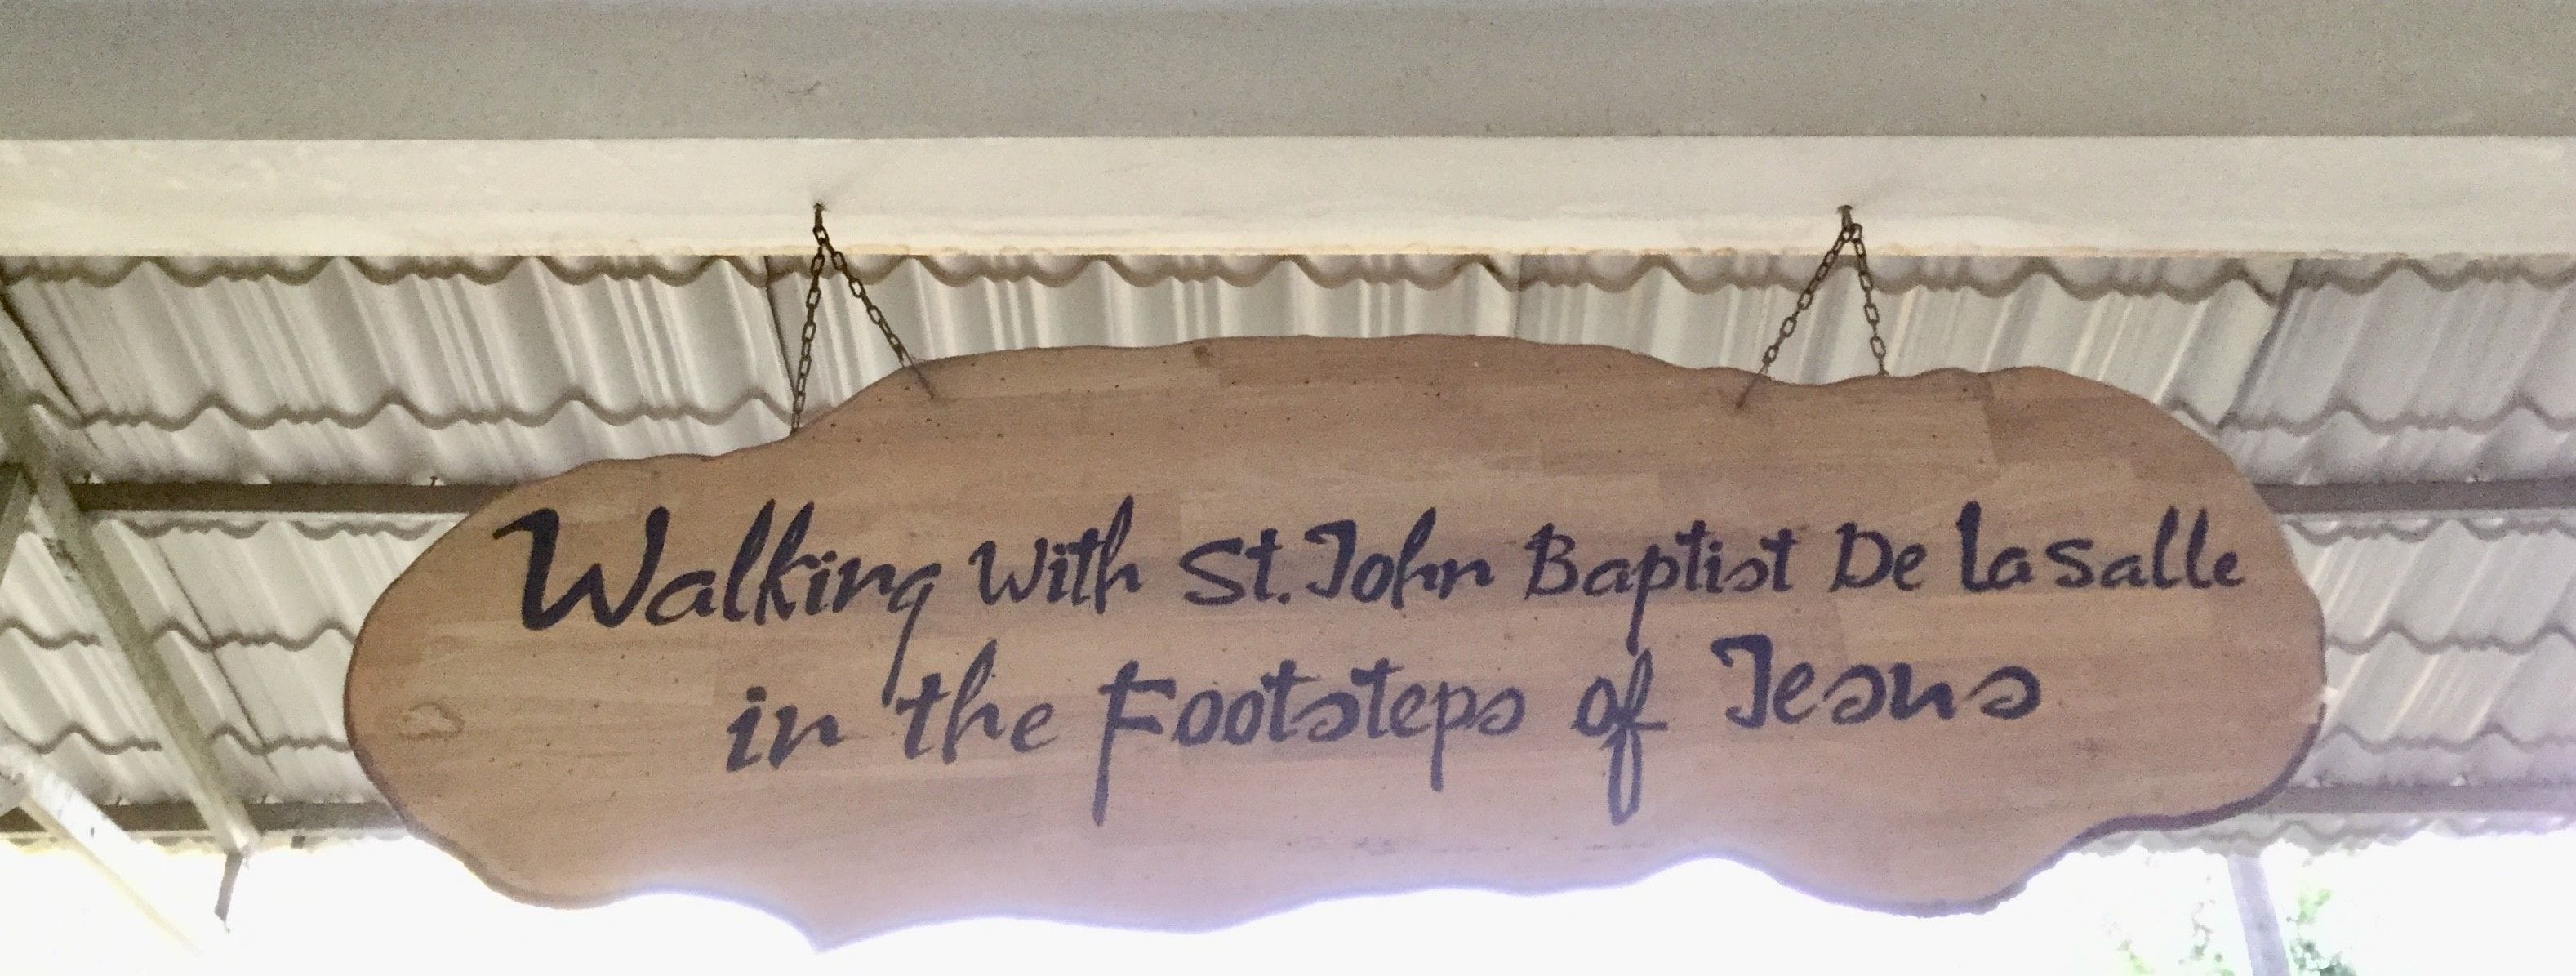 Walking With St. John Baptist De La Salle
in the Footsteps of Jesus